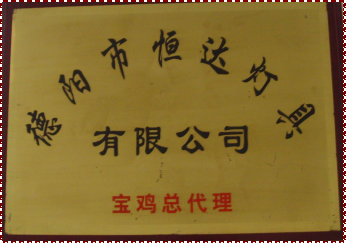 德阳市恒达灯具
有限公司
宝鸡总代理